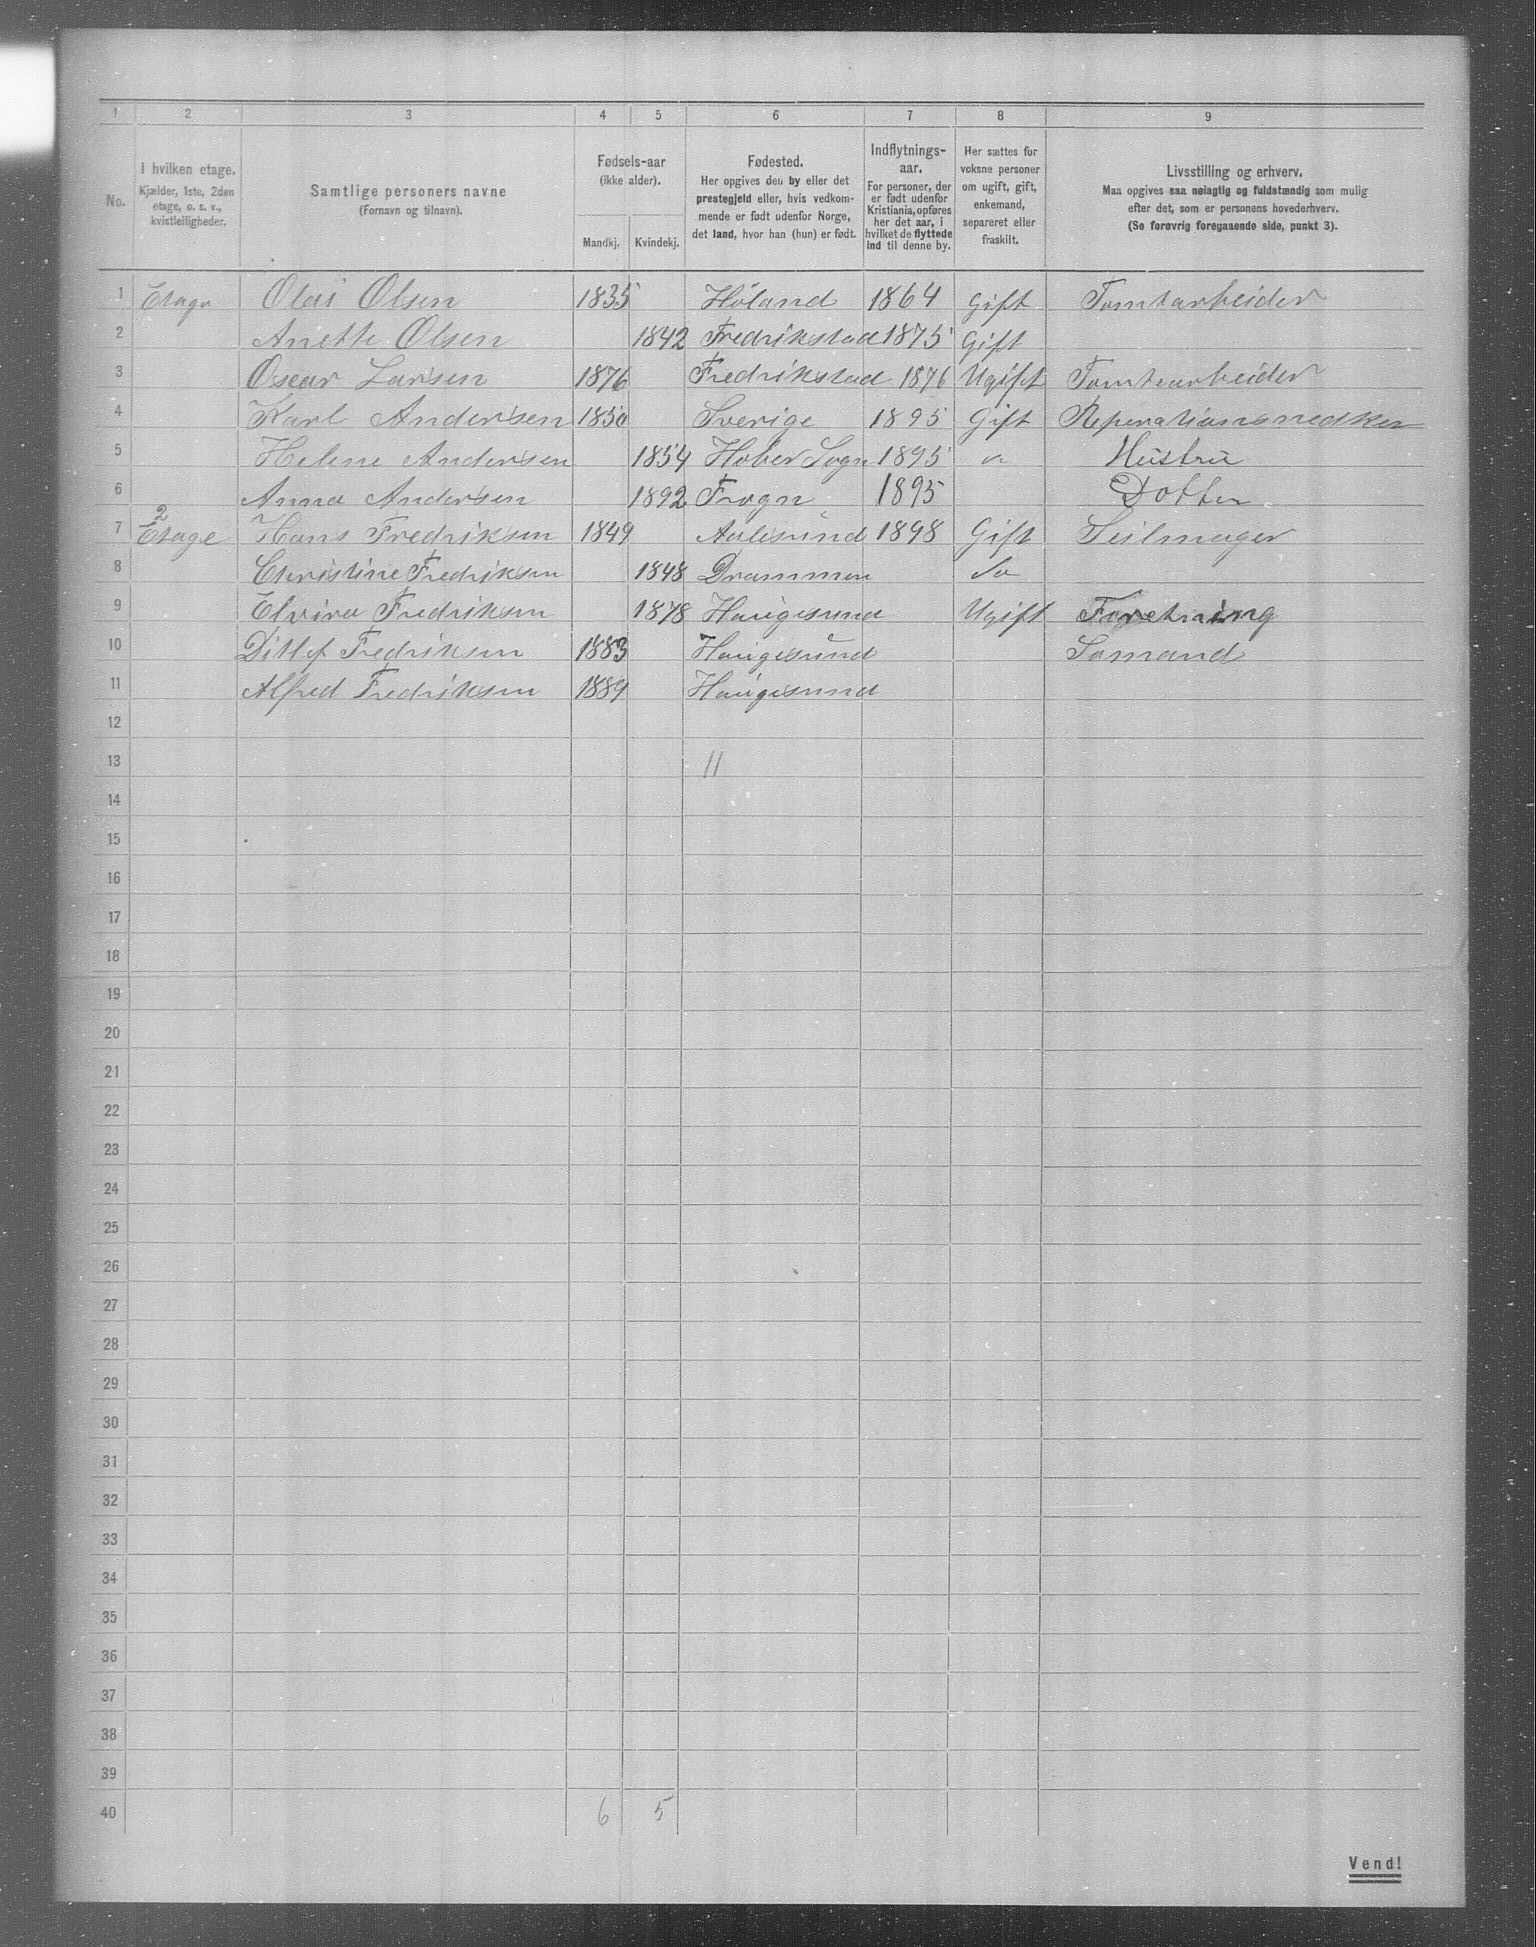 1 2 3 4 5 6 7 8 9
No.
I hvilken etage.
Kjælder, 1ste, 2den
etage, o. s. v.,
kvistleiligheder.
Samtlige personers navne
(Fornavn og tilnavn).
Fødsels-aar
(ikke alder).
Mandkj. Kvindekj.
Fødested.
Her opgives den by eller det
prestegjeld eller, hvis vedkom-
mende er født udenfor Norge,
det land, hvor han (hun) er født.
Indflytnings-
aar.
For personer, der
er født udenfor
Kristiania, opføres
her det aar, i
hvilket de flyttede
ind til denne by.
Her sættes for
voksne personer
om ugift, gift,
enkemand,
separeret eller
fraskilt.
Livsstilling og erhverv.
Maa opgives saa nøiagtig og fuldstændig som mulig
efter det, som er personens hovederhverv.
(Se forøvrig foregaaende side, punkt 3).
1 Etage Olai Olsen 1835 Høland 1864 Gift Tomtarbeider
2 Anette Olsen 1842 Fredrikstad 1875 Gift
3 Oscar Larsen 1876 Fredrikstad 1876 Ugift Tomtearbeider
4 Karl Andersen 1850 Sverige 1895 Gift Reperationsnedker
5 Helene Andersen 1854 Hobør Sogn 1895 " Hustru
6 Anna Andersen 1892 Frogn 1895 Dotter
7 2 Etage Hans Fredriksen 1849 Aalesund 1898 Gift Seilmager
8 Christine Fredriksen 1848 Drammen do
9 Elvira Fredriksen 1878 Haugesund Ugift Foretning
10 Ditlef Fredriksen 1883 Haugesund Sømand
11 Alfred Fredriksen 1889 Haugesund
12
13 11
14
15
16
17
18
19
20
21
22
23
24
25
26
27
28
29
30
31
32
33
34
35
36
37
38
39
40 6 5
Vend!